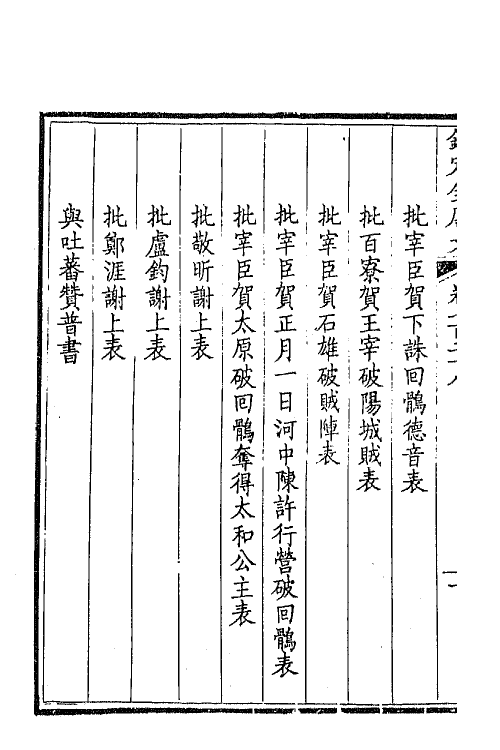 批宰臣賀下誅回鶻德音表
批百寮賀王宰破陽城賊表
批宰臣賀石雄破賊陣表
批宰臣賀正月一日河中陳許行營破回鶻表
批宰臣賀太原破回鶻奪得太和公主表
批敬昕謝上表
批盧鈞謝上表
批鄭涯謝上表
與吐蕃贊普書